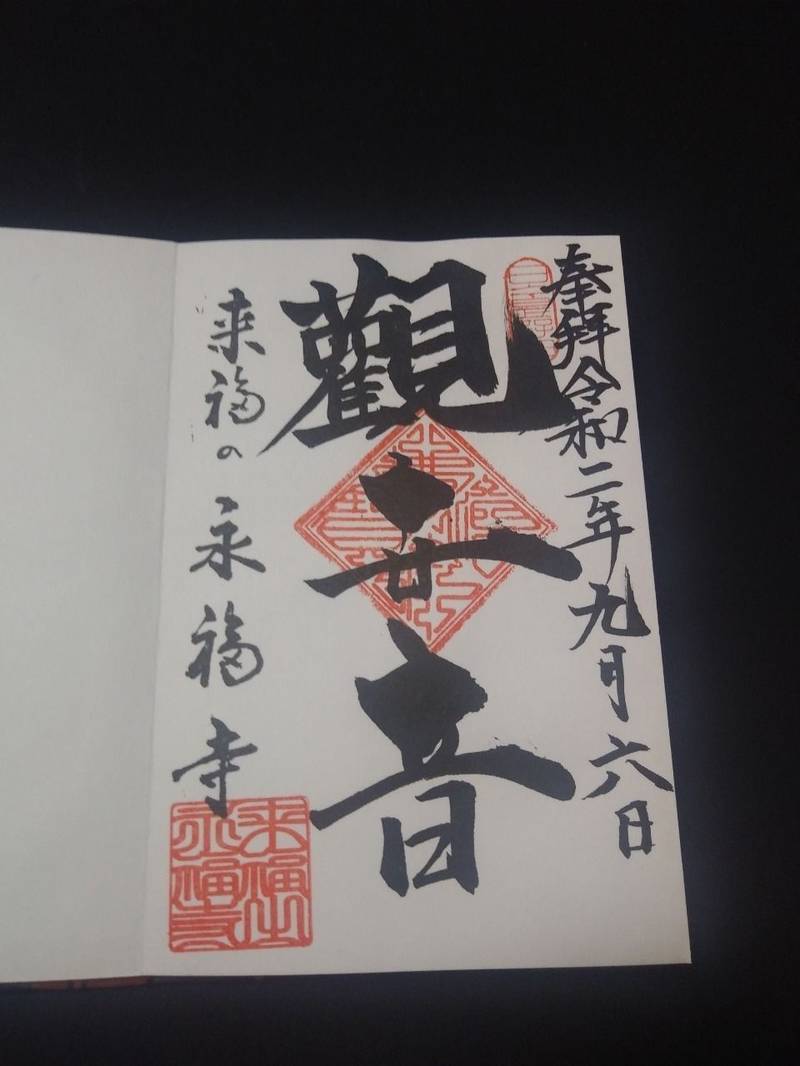 奉拝令和二年九月六日
觀世音
来福の永福寺
来福山
永福寺